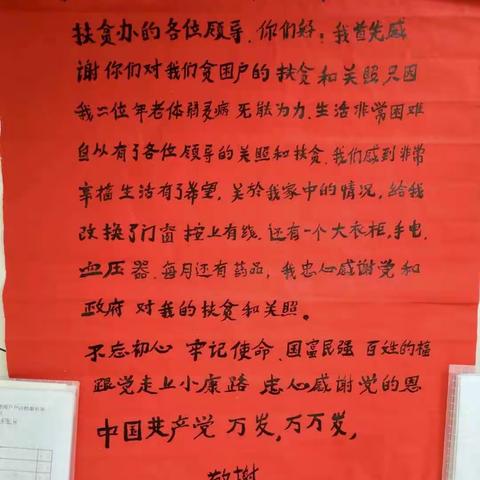 扶贫办的各位领导、你们好：我首先感
谢你们对我们贫困户的扶贫和关照只因
我二位年老体弱多病无能为力、生活非常困难
自从有了各位领导的关照和扶贫、我们感到非常
幸福生活有了希望、关於我家中的情况、给我
改换了门窗按上有线、还有一个大衣柜,手电,
血压器、每月还有药品，我忠心感谢党和
政府 对我的扶贫和关照。
不忘初心 牢记使命、国富民强 百姓的福
跟党走上小康路 忠心感谢党的恩
中国共产党 万岁,万万岁,
敬谢